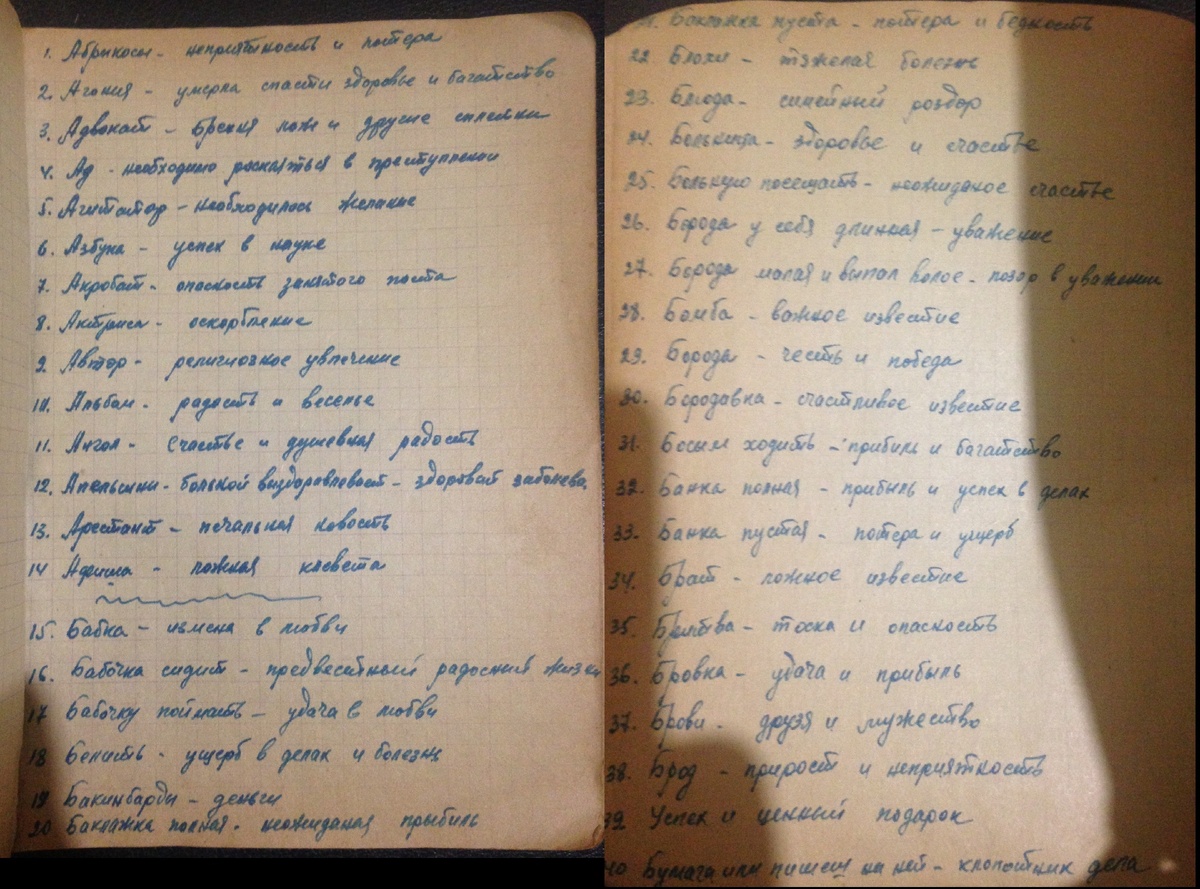 1. Абрикосы - неприятность и потера
2. Агония - умерла спасти здоровье и багатство
3. Адвокат - брехня лож и другие сплетни
4. Ад - необходимо роскаяться в преступлении
5. Агитатор - необходилось желание
6. Азбука - успех в науке
7. Акробат - опасность занятого поста
8. Актриса - оскорбление
9. Автор - религиозное увлечение
10. Альбом - радость и веселье
11. Ангол - счастье и душевная радость
12. Апельсини - больной выздоровлевает - здоровый заболева
13. Арестант - печальная новость
14 Афиша - ложная клевета
15. Бабка - измена в любви
16. Бабочка сидит - предвестный радосний жизни
17 Бабочку поймать - удача в любви
18 Белить - ущерб в делах и болезнь
19 Бакинбарды - деньги
20 Баклажка полная - неожиданая прыбиль
21. Баклажка пуста - потера и бедность
22 Блохи - тяжелая болезнь
23. Блюда - симейный роздор
24. Больница - здоровье и счастье
25. Больную посещать - неожиданое счастье
26. Борода у себя длинная - уважение
27. Борода малая и выпал волос - позор в уважении
28. Бомба - важное известие
29. Борода - честь и победа
30. Бородавка - счастливое известие
31. Босым ходить - прибиль и багатство
32. Банка полная - прибыль и успех в делах
33. Банка пустая - потера и ущерб
34. Брат - ложное известие
35. Бритва - тоска и опасность
36. Бровка - удача и прибыль
37. Брови - друзя и мужество
38. Брод - прирост и неприятность
39 Успех и ценный подарок
40 Бумага или пишеш на ней - клопотник дела